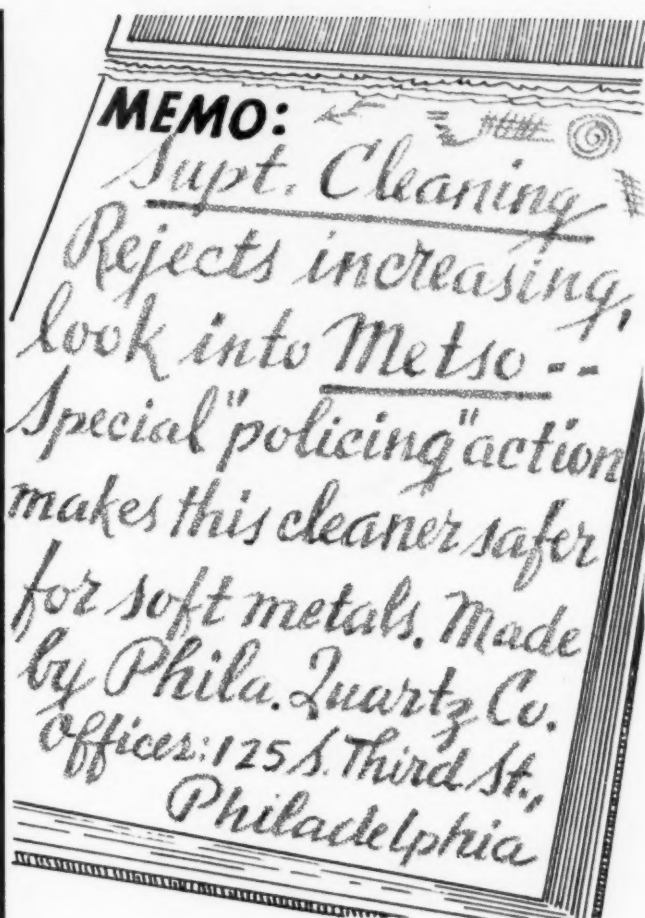 MEMO:
Supt. Cleaning
Rejects increasing,
look into Metso --
Special "policing" action
makes this cleaner safer
for soft metals. Made
by Phila. Quartz Co.
Offices: 125 S. Third St.,
Philadelphia